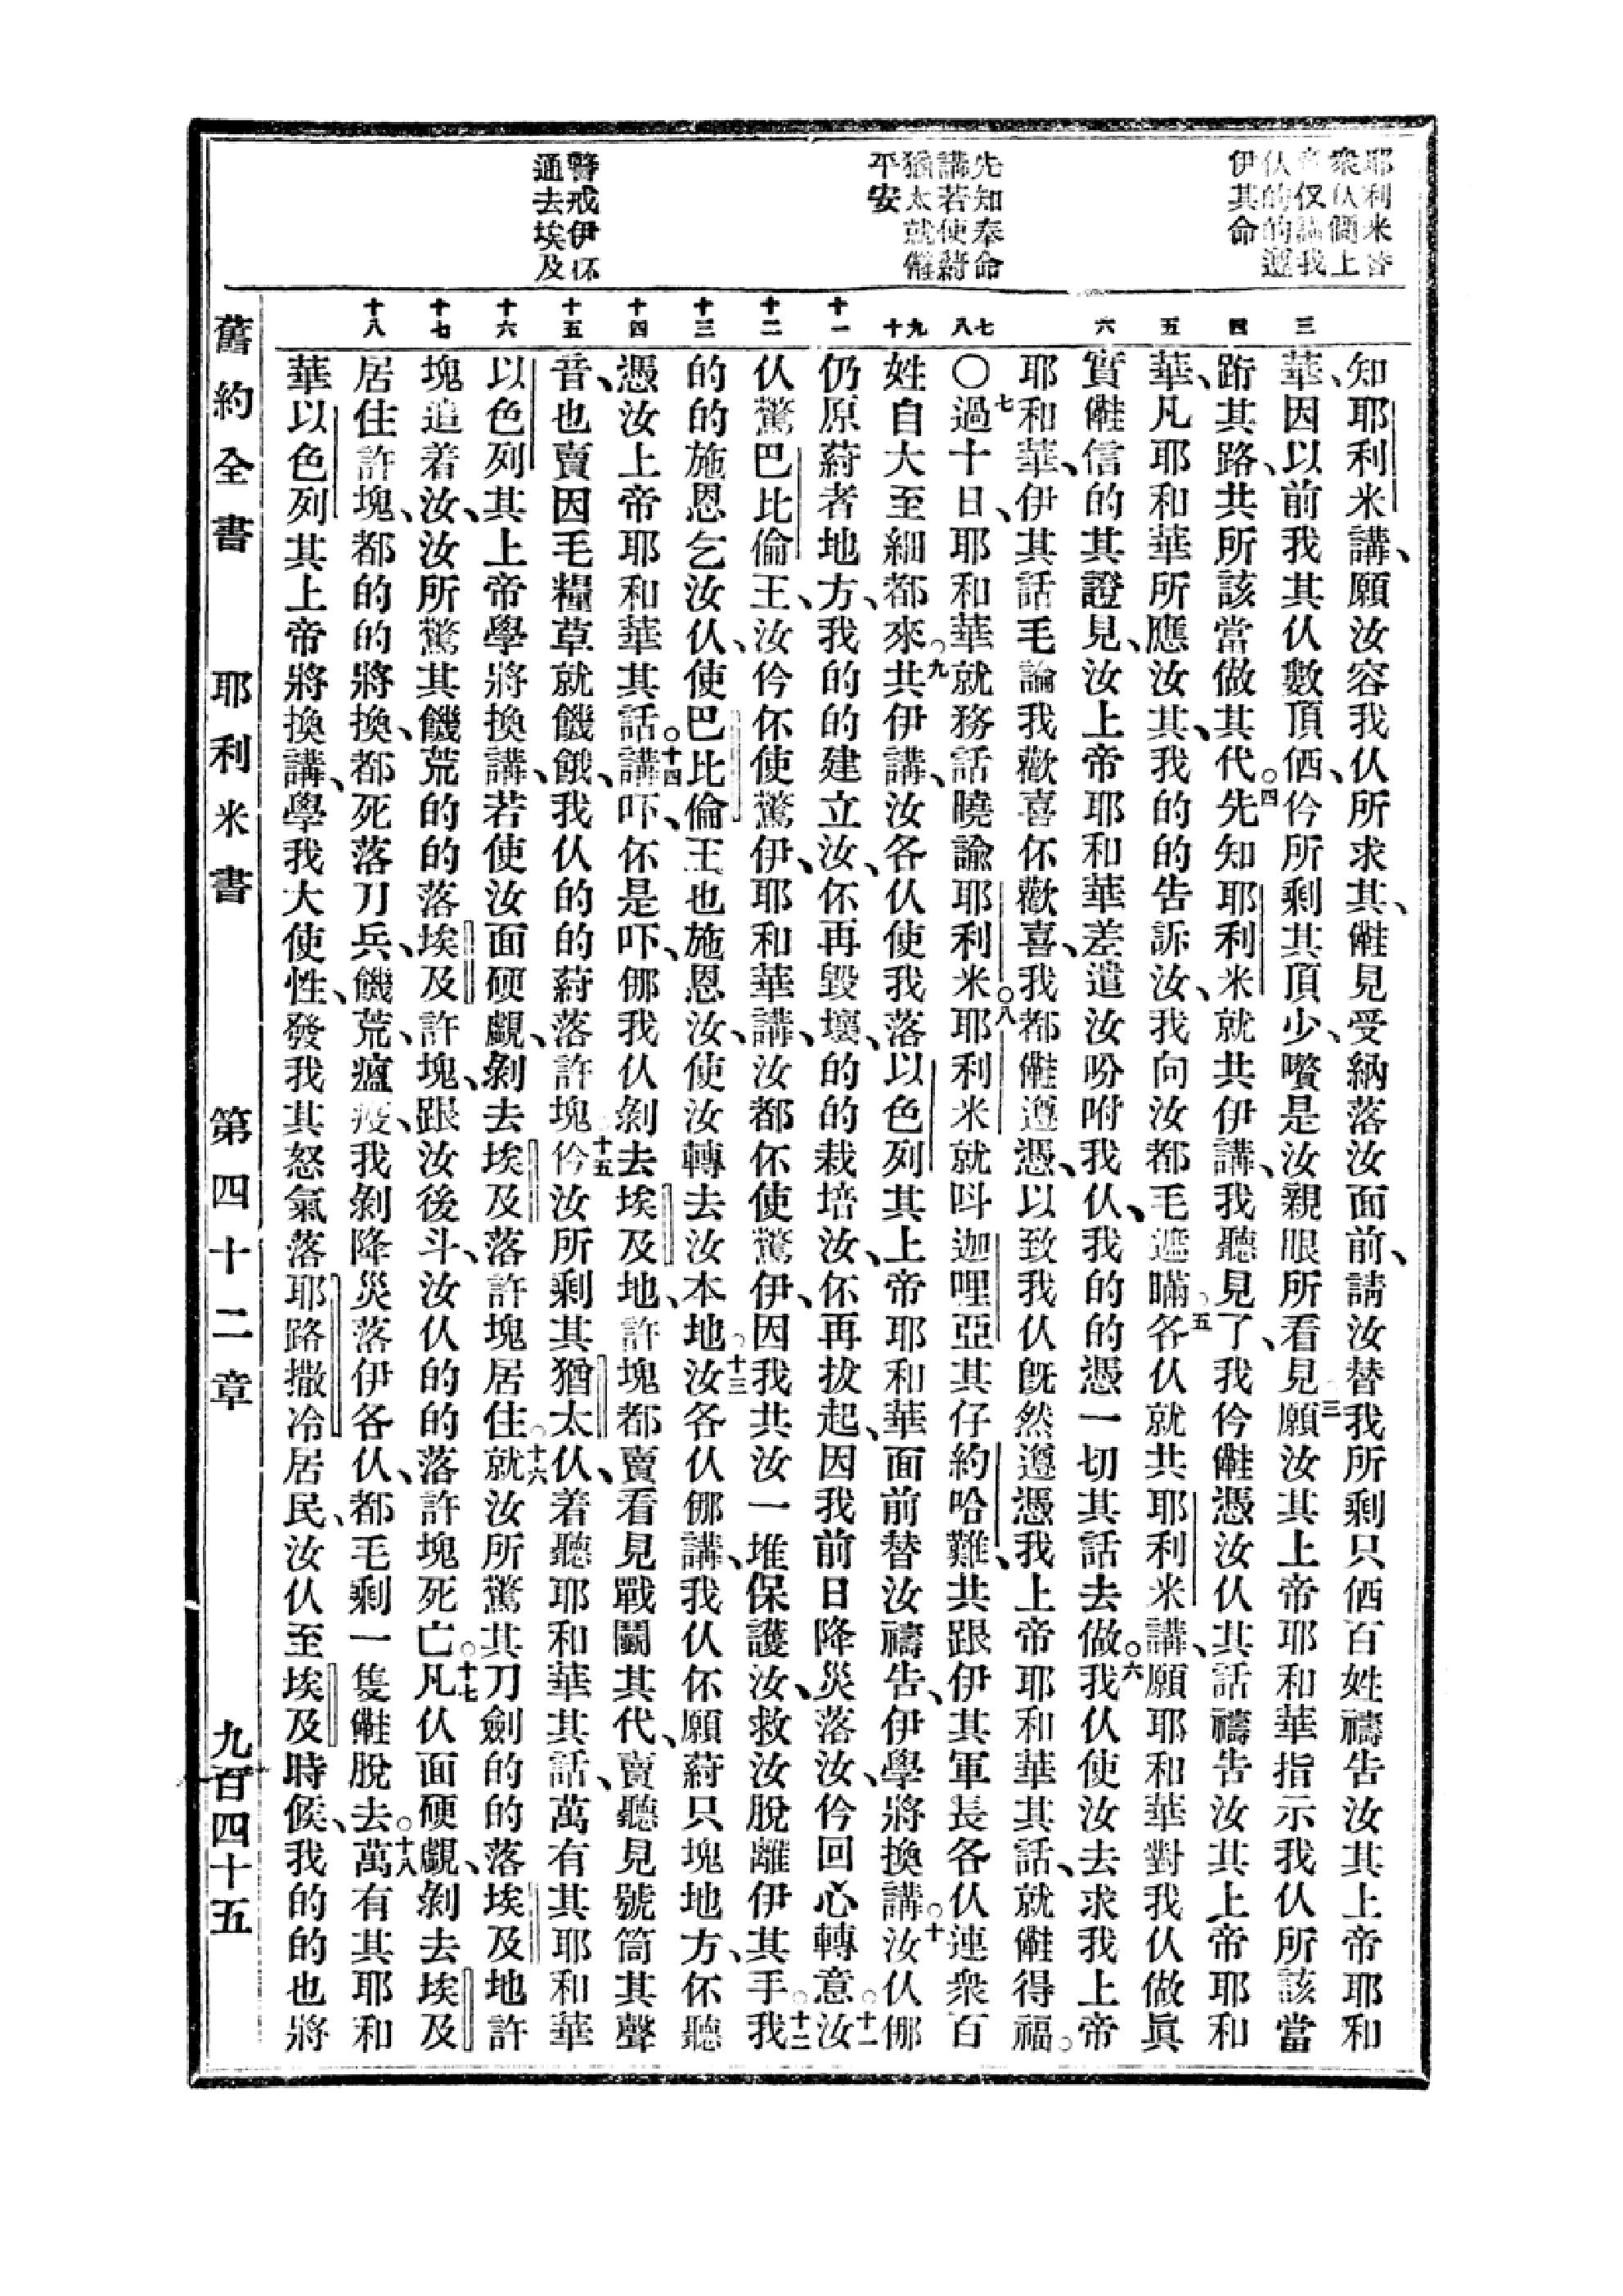 耶利米替
衆仈問上
仈的的遵
伊其命
先知奉命
講若使蒔
猶太就
平安
警戒伊伓
通去埃及
三
四
五
六
七
八
九
十
十一
十二
十三
十四
十五
十六
十七
十八
知耶利米講、願汝容我仈所求其、見受納落汝面前、請汝替我所剩只百姓禱告汝其上帝耶和
華、因以前我其仈數頂、仱所剩其頂少、嚽是汝親眼所看見三願汝其上帝耶和華指示我仈所該當
跭其路、共所該當做其代。四先知耶利米就共伊講、我聽見了、我仱憑汝仈其話禱告汝其上帝耶和
華、凡耶和華所應汝其、我的的告訴汝、我向汝都毛遮瞞。五各仈就共耶利米講、願耶和華對我仈做眞
實信的其證見、汝上帝耶和華差遣汝吩咐我仈、我的的憑一切其話去做。六我仈使汝去求我上帝
耶和華、伊其話毛論我歡喜伓歡喜、我都遵憑、以致我仈旣然遵憑我上帝耶和華其話、就得福。
〇七過十日、耶和華就務話曉諭耶利米。八耶利米就呌迦哩亞其仔約哈難、共跟伊其軍長各仈連衆百
姓自大至細都來。九共伊講、汝各仈使我落以色列其上帝耶和華面前替汝禱告、伊學將換講。十汝仈㑚
仍原蒔者地方、我的的建立汝、伓再毀壞、的的栽培汝、伓再拔起、因我前日降災落汝、仱回心轉意。十一汝
仈驚巴比倫王、汝仱伓使驚伊、耶和華講、汝都伓使驚伊、因我共汝一堆保護汝、救汝脫離伊其手。十二我
的的施恩乞汝仈、使巴比倫王也施恩汝、使汝轉去汝本地。十三汝各仈㑚講、我仈伓願蒔只塊地方、伓聽
憑汝上帝耶和華其話。十四講吓、伓是吓、㑚我仈剝去埃及地、許塊都賣看見戰鬭其代、賣聽見號筒其聲
音、也賣因毛糧草就饑餓、我仈的的蒔落許塊十五仱汝所剩其猶太仈、着聽耶和華其話、萬有其耶和華
以色列其上帝學將換講、若使汝面硬覷、剝去埃及落許塊居住。十六就汝所驚其刀劍的的落埃及地許
塊追着汝、汝所驚其饑荒的的落埃及許塊、跟汝後斗、汝仈的的落許塊死亡。十七凡仈面硬覷、剝去埃及
居住許塊、都的的將換、都死落刀兵、饑荒、瘟疫、我剝降災落伊各仈、都毛剩一隻脫去。十八萬有其耶和
華以色列其上帝將換講、學我大使性、發我其怒氣落耶路撒冷居民、汝仈至埃及時候、我的的也將
舊約全書　耶利米書　第四十二章　九百四十五